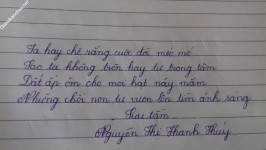 Ta hay chê rằng cuộc đời méo mó
Sao ta không tròn ngay tự trong tâm
Đất ấp ôm cho mọi hạt nảy mầm
Những chồi non tự vươn lên tìm ánh sáng
Sưu tầm
Nguyễn Thị Thanh Thuỷ